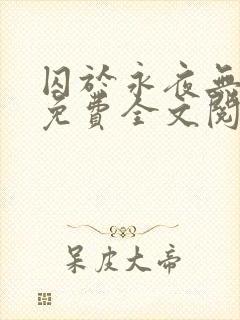 囚於永夜無
免費全文閱
呆皮大帝